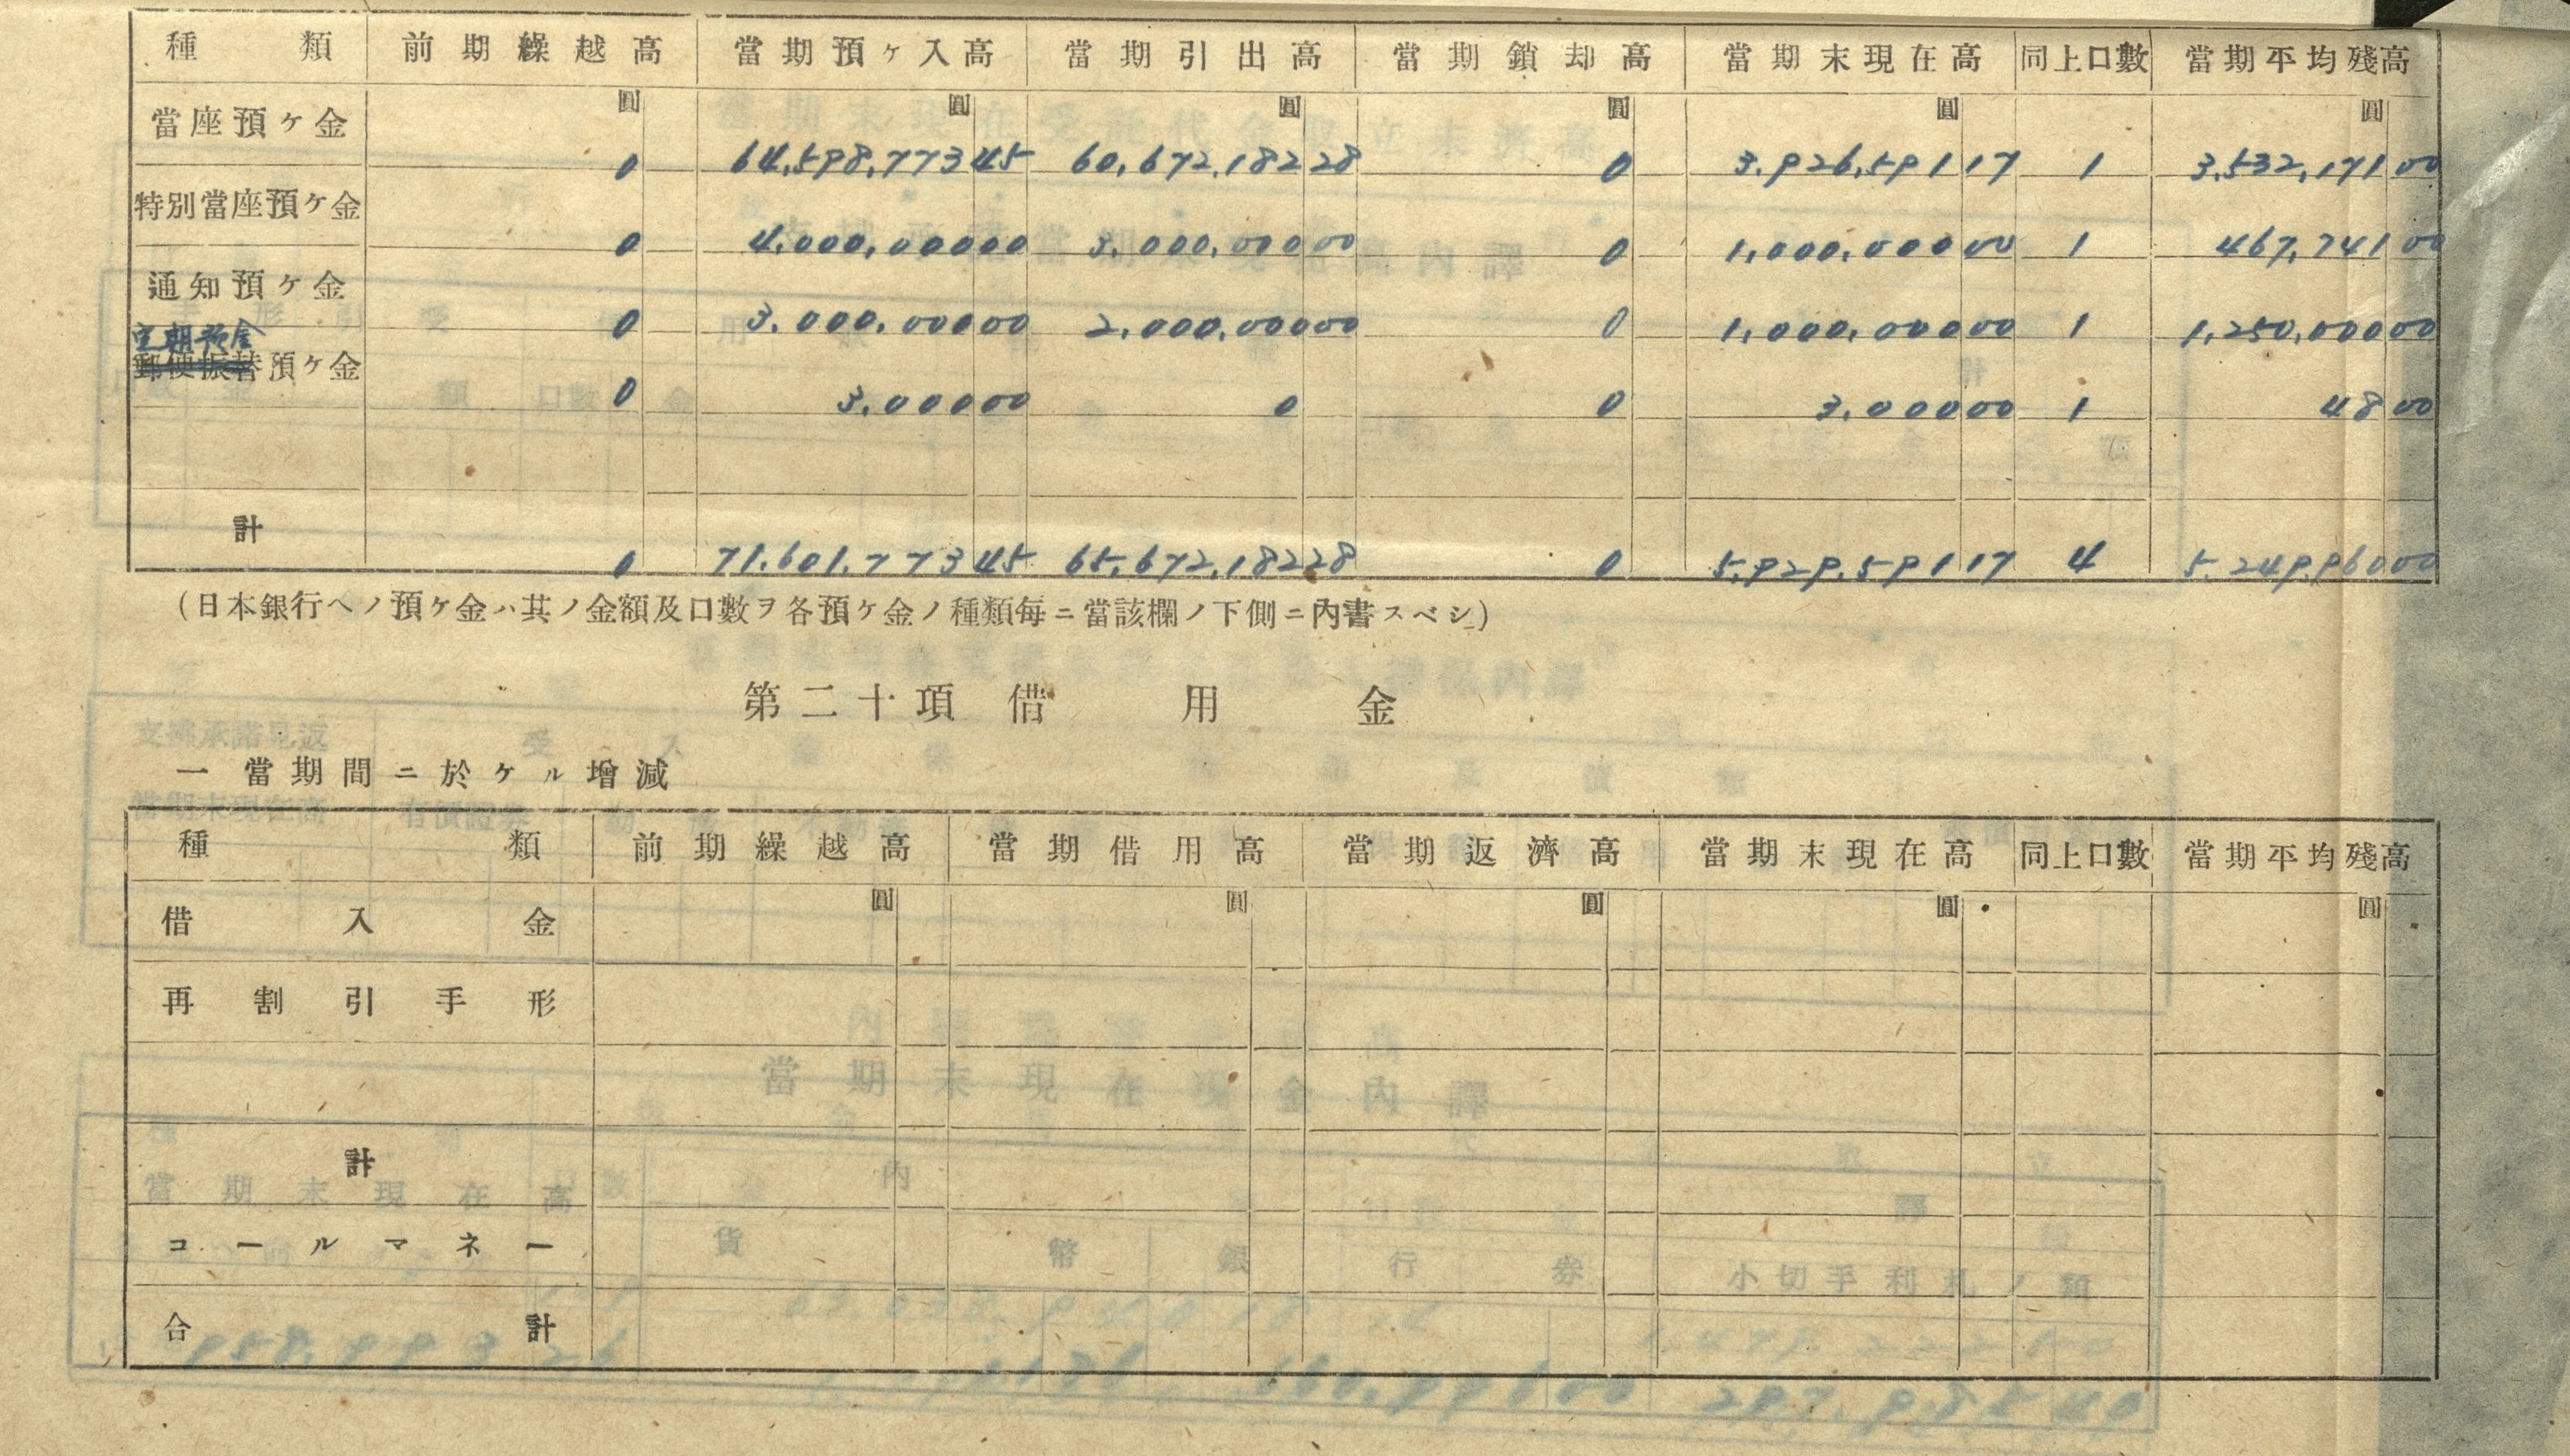 種類 前期繰越高 當期預ヶ入高 當期引出高 當期鎖却高 當期末現在高 同上口數 當期平均殘高
圓 圓 圓 圓 圓 圓
當座預ヶ金 0 64,598,773 45 60,672,182 28 0 3,926,591 17 1 3,532,171 00
特別當座預ヶ金 0 4,000,000 00 3,000,000 00 0 1,000,000 00 1 467,741 00
通知預ヶ金 0 3,000,000 00 2,000,000 00 0 1,000,000 00 1 1,250,000 00
定期預金
郵便振替預ヶ金 0 3,000 00 0 0 3,000 00 1 48 00
計 0 71,601,773 45 65,672,182 28 0 5,929,591 17 4 5,249,960 00
(日本銀行ヘノ預ケ金ハ其ノ金額及口數ヲ各預ケ金ノ種類每ニ當該欄ノ下側ニ內書スベシ)
第二十項 借用金
一 當期間ニ於ケル增減
種類 前期繰越高 當期借用高 當期返濟高 當期末現在高 同上口數 當期平均殘高
圓 圓 圓 圓 圓
借入金
再割引手形
計
コールマネー
合計